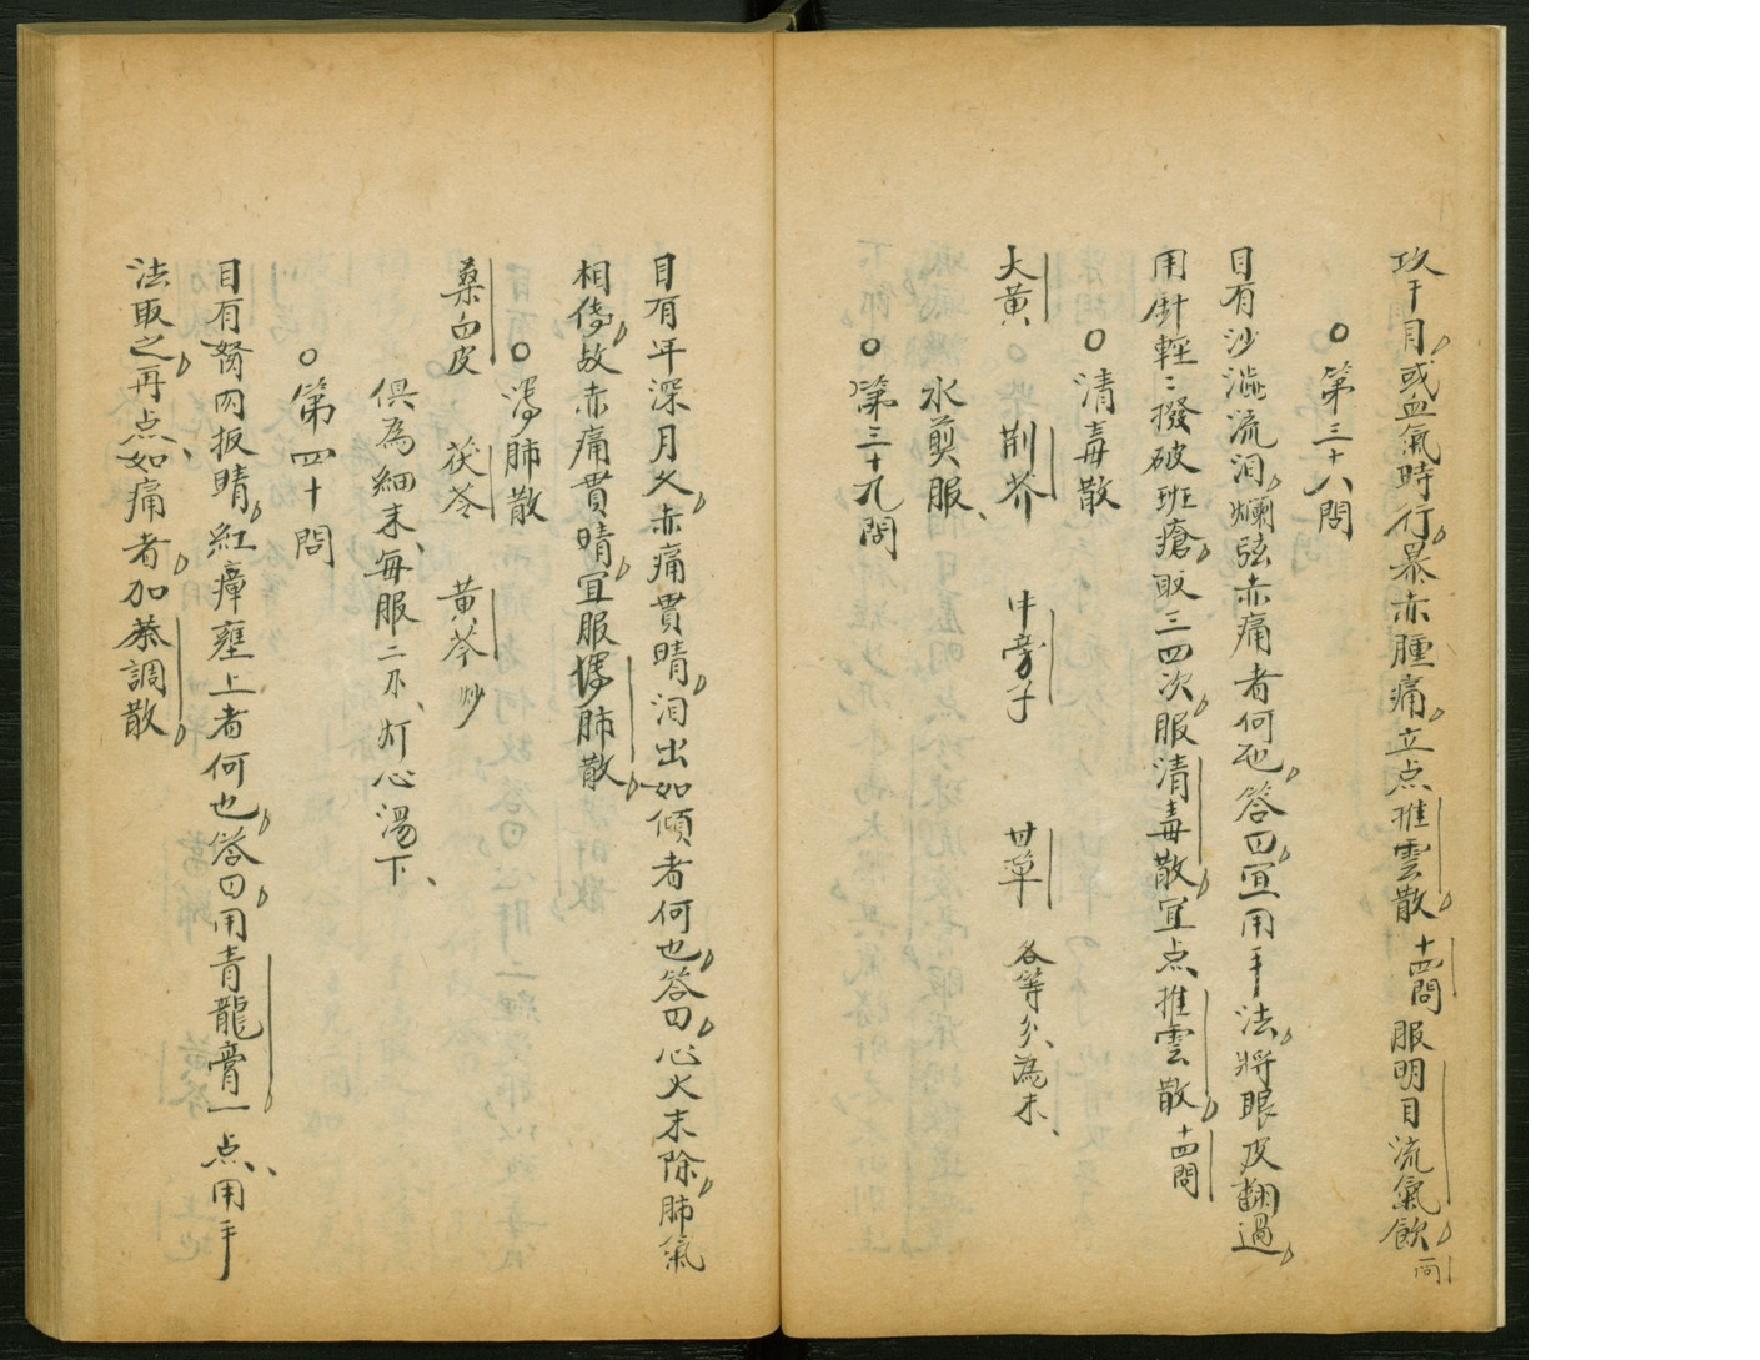 攻于目或血氣時行暴赤腫痛立点推雲散十四問服明目流氣飲同
○第三十八問
目有沙澁流泪爛弦赤痛者何也答曰宜用手法將眼皮翻過
用針輕〻撥破班瘡取三四次服清毒散宜点推雲散十四問
○清毒散
大黄 荆芥 牛旁子 甘草 各等分為末
水煎服
○第三十九問
目有年深月久赤痛貫晴泪出如傾者何也答曰心火末除肺氣
相傳故赤痛貫晴宜服瀉肺散
○瀉肺散
桑白皮 茯苓 黄芩炒
俱為細末每服二分灯心湯下
○第四十問
目有胬肉扳晴紅瘴壅上者何也答曰用青龍膏一点用手
法取之再点如痛者加蔡調散